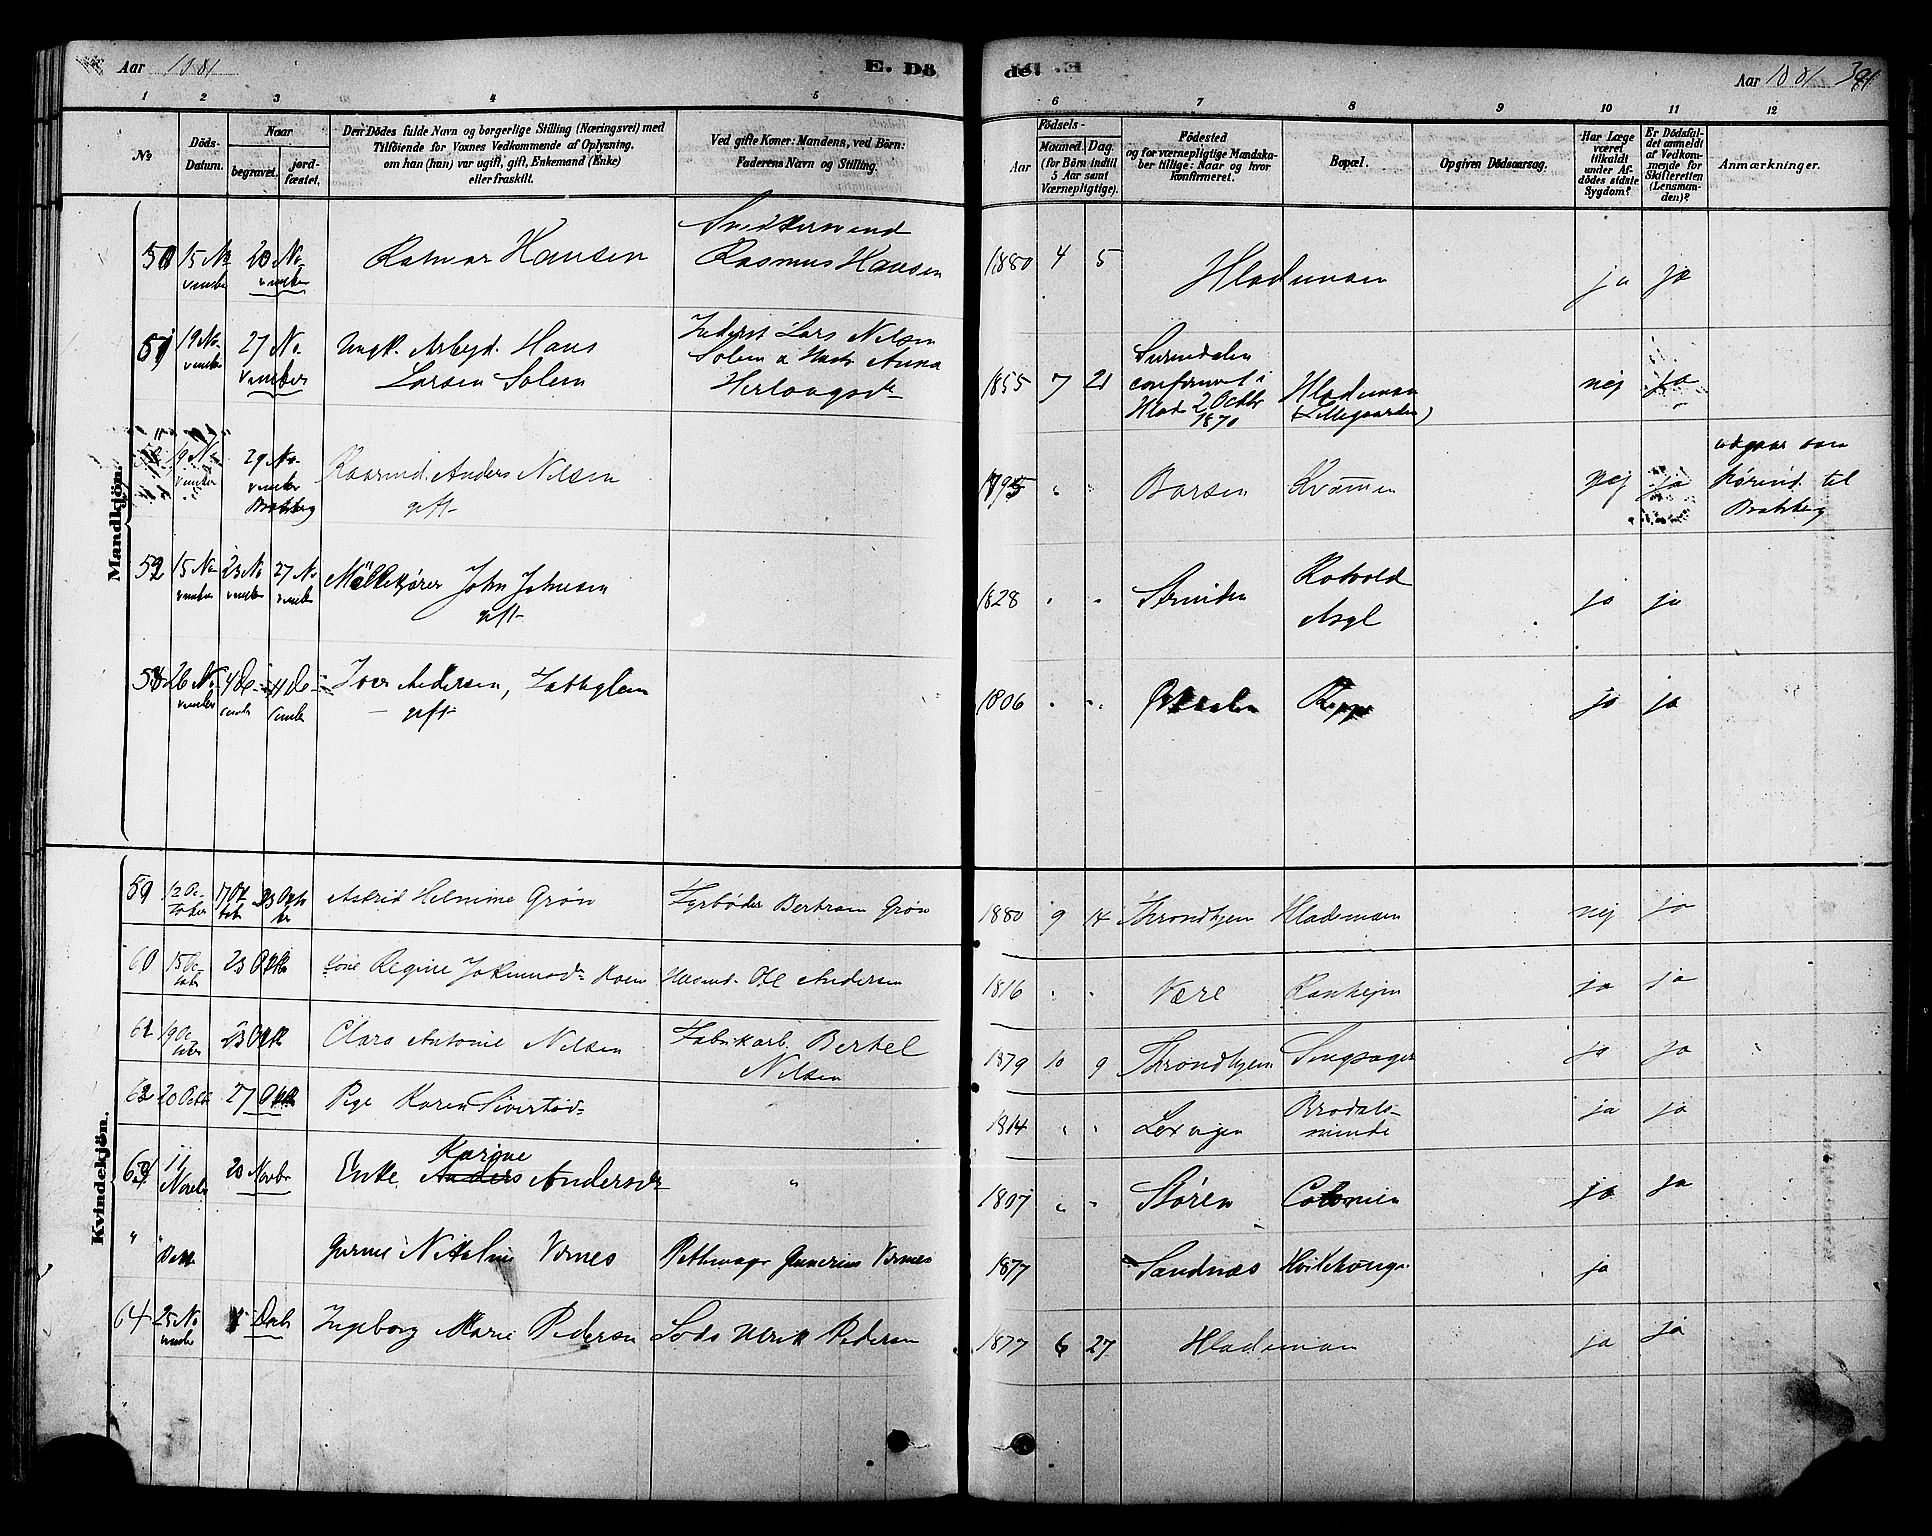 Aar 1881
E. Dö
de. E.
Aar 1881
1 2 3 4 5
6 7 8 9 10 11 12
No
Döds-
Datum.
Naar
begravet.
jord-
fæstet.
Den Dödes fulde Navn og borgerlige Stilling (Næringsvei) med
Tilföiende for Voxnes Vedkommende af Oplysning,
om han (hun) var ugift, gift, Enkemand (Enke)
eller fraskilt.
Ved gifte Koner: Mandens, ved Börn:
Faderens Navn og Stilling.
Födsels-
Aar
Maaned. Dag.
(for Börn indtil
5 Aar samt
Værnepligtige).
Födested
og for værnepligtige Mandska-
ber tillige: Naar og hvor
konfirmeret.
Bopæl.
Opgiven Dödsaarsag.
Har Læge
været
tilkaldt
under Af-
dödes sidste
Sygdom?
Er Dödsfal-
det anmeldt
af Vedkom-
mende for
Skifteretten
(Lensman-
den)?
Anmærkninger.
Mandkjön.
50 15 No
vember 20 No
vember Ratnar Hansen Snedkersvend
Rasmus Hansen 1880 4 5 Hladumoen ja ja
51 19 No
vember 27 No
vember Ungk. Arbejd. Hans
Larsen Solem Inderst Lars Nilsen
Solem a Hustr Anna
Herlaugsdr 1855 7 21 Surendalen
confirmert i
Hlade 2 Octbr
1870 Hlademoen
(Lillegaarden) nej ja
19 No
vember 29 No
vember
Bratsberg Kaarmd. Anders Nilsen
gft 1795 " " Barsen Kvammen nej ja udgaar som
hørend. til
Bratsberg
52 15 No
vember 23 No
vember 27 No
vember Møllekjører John Johnsen
gft 1828 " " Strinden Rotvold
Asyl ja ja
58 26 No
vember 4 De
cember 11 De
cember Iver Andersen, Fattiglem
gft 1806 " " ja ja
Kvindekjön.
59 12 Oc-
tober 17 Okt
tob 23 Octo
ber Astrid Helmine Grøn Fyrbøder Bertram Grøn 1880 9 14 Throndhjem Hlademoen nej ja
60 15 Oc-
tober 23 Octbr Kone Regine Jokumsdr Husmd. Ole Andersen 1816 " " Være Ranhejm ja ja
61 19 Oc
tober 23 Octbr Clara Antonie Nilsen Fabrikarb. Bertel
Nilsen 1879 10 9 Throndhjem Singsager ja ja
62 20 Octob 27 Octbr Pige Karen Sivertsdr 1814 " " Lexvigen Brodals-
minde ja ja
63 11
Novbr 20 Novbr Enke Karine
Anders Andersdr " 1807 " " Støren Colonien ja ja
" Gurine Nikoline Vernes Gunerius Vernes 1877 Sandnæs ja
64 25 No
vember Decb Ingeborg Marie Pedersen Ulrik Pedersen 1877 6 27 Hlademoen ja ja